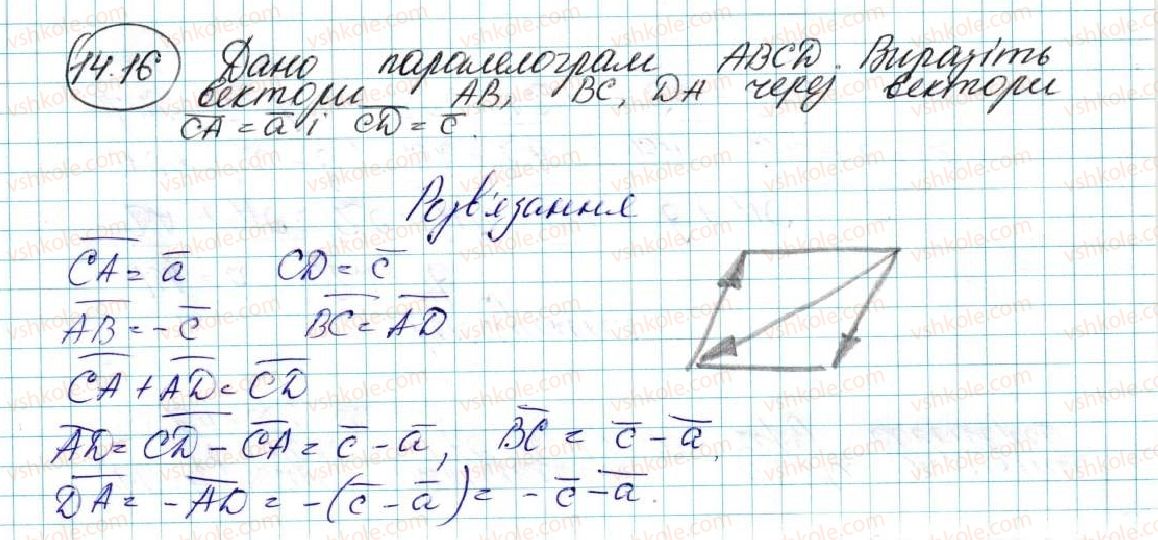 14.16 Дано паралелограм ABCD. Виразіть
вектори AB, BC, DA через вектори
C̅A̅ = a̅ і C̅D̅ = c̅.
Розв'язання
C̅A̅ = a̅ CD = c̅
A̅B̅ = -c̅ B̅C̅ = A̅D̅
C̅A̅ + A̅D̅ = C̅D̅
A̅D̅ = C̅D̅ - C̅A̅ = c̅ - a̅, B̅C̅ = c̅ - a̅,
D̅A̅ = -A̅D̅ = -(c̅ - a̅) = -c̅ - a̅.
vshkole.com